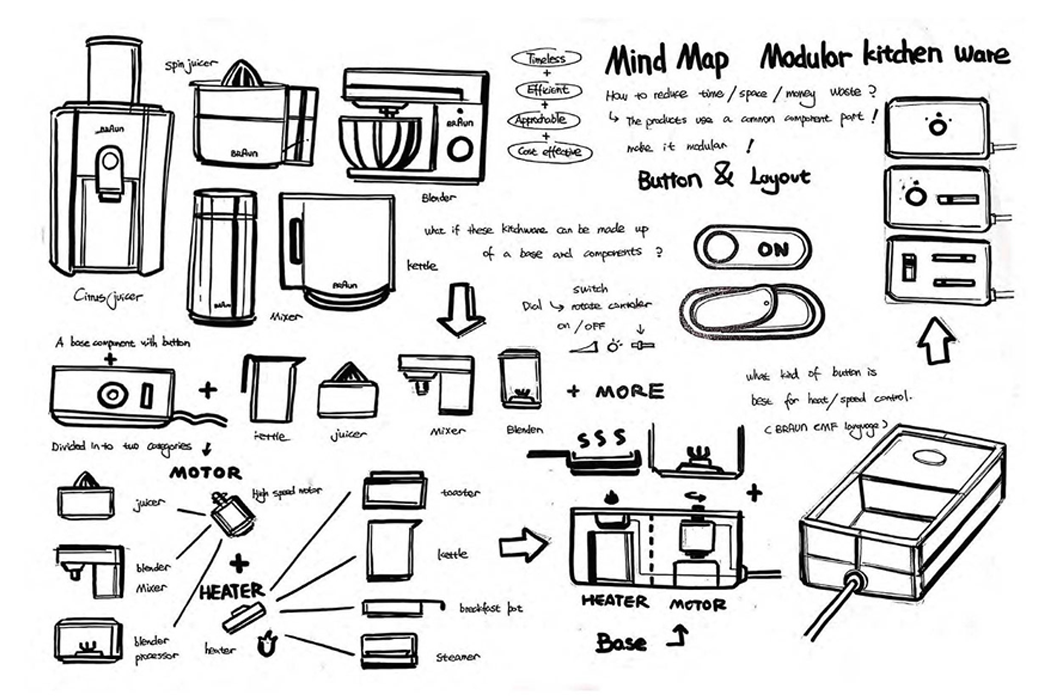 Mind Map Modular kitchen ware
How to reduce time/space/money waste?
↳ The products use a common component part!
make it modular!
Button & Layout
Timeless
+
Efficient
+
Approchable
+
Cost effective
spin juicer
BRAUN
BRAUN
BRAUN
Blender
Citrus/juicer
BRAUN
Mixer
BRAUN
kettle
what if these kitchware can be made up
of a base and components?
ON
switch
Dial ↳ rotate controler
on/OFF
A base component with button
+
+
kettle
juicer
Mixer
Blender
+ MORE
what kid of button is
best for heat/speed control.
(BRAUN CMF language)
Divided in to two categories
MOTOR
High speed motor
juicer
blender
Mixer
blender
processor
+
HEATER
heater
toaster
kettle
breakfast pot
steamer
SSS
+
HEATER MOTOR
Base